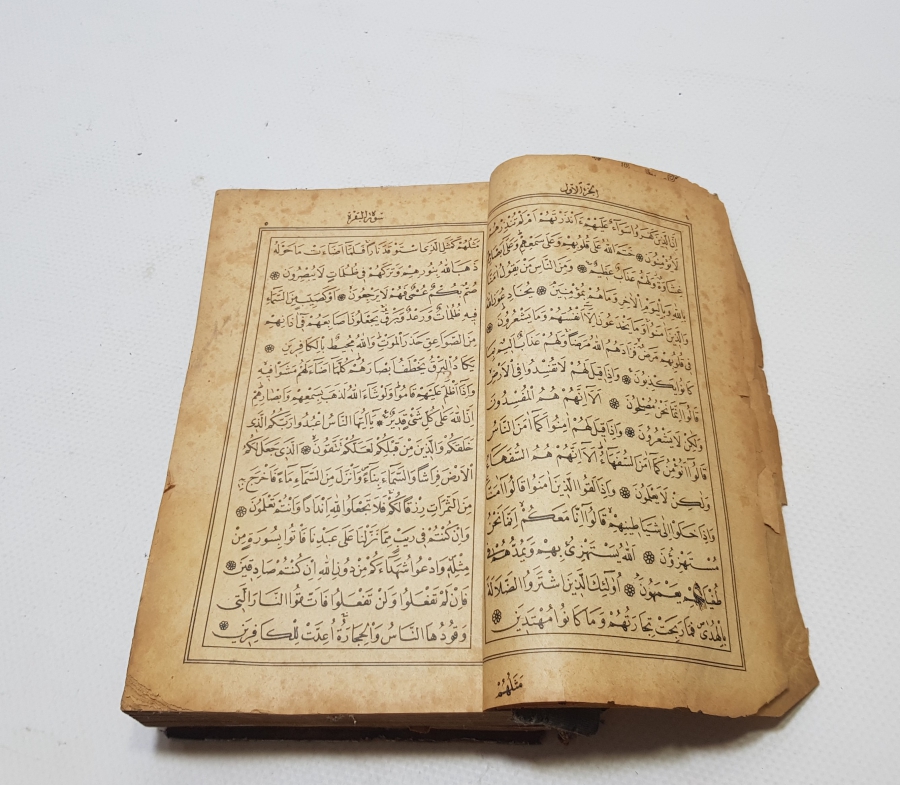 الجزء الاول
اِنَّ الَّذِينَ كَفَرُوا سَوَاءٌ عَلَيْهِمْ ءَاَنْذَرْتَهُمْ اَمْ لَمْ تُنْذِرْهُمْ
لَا يُؤْمِنُونَ ۞ خَتَمَ اللهُ عَلَى قُلُوبِهِمْ وَعَلَى سَمْعِهِمْ وَعَلَى اَبْصَارِ
غِشَاوَةٌ وَلَهُمْ عَذَابٌ عَظِيمٌ ۞ وَمِنَ النَّاسِ مَنْ يَقُولُ اٰمَنَّا
بِاللهِ وَبِالْيَوْمِ الْاٰخِرِ وَمَا هُمْ بِمُؤْمِنِينَ ۞ يُخَادِعُونَ
وَالَّذِينَ اٰمَنُوا وَمَا يَخْدَعُونَ اِلَّا اَنْفُسَهُمْ وَمَا يَشْعُرُونَ ۞
فِى قُلُوبِهِمْ مَرَضٌ فَزَادَهُمُ اللهُ مَرَضًا وَلَهُمْ عَذَابٌ اَلِيمٌ بِمَا
كَانُوا يَكْذِبُونَ ۞ وَاِذَا قِيلَ لَهُمْ لَا تُفْسِدُوا فِى الْاَرْضِ
قَالُوا اِنَّمَا نَحْنُ مُصْلِحُونَ ۞ اَلَا اِنَّهُمْ هُمُ الْمُفْسِدُونَ
وَلٰكِنْ لَا يَشْعُرُونَ ۞ وَاِذَا قِيلَ لَهُمْ اٰمِنُوا كَمَا اٰمَنَ النَّاسُ
قَالُوا اَنُؤْمِنُ كَمَا اٰمَنَ السُّفَهَاءُ اَلَا اِنَّهُمْ هُمُ السُّفَهَاءُ
وَلٰكِنْ لَا يَعْلَمُونَ ۞ وَاِذَا لَقُوا الَّذِينَ اٰمَنُوا قَالُوا اٰمَنَّا
وَاِذَا خَلَوْا اِلَى شَيَاطِينِهِمْ قَالُوا اِنَّا مَعَكُمْ اِنَّمَا نَحْنُ
مُسْتَهْزِؤُنَ ۞ اَللهُ يَسْتَهْزِئُ بِهِمْ وَيَمُدُّهُمْ فِى
طُغْيَانِهِمْ يَعْمَهُونَ ۞ اُولٰئِكَ الَّذِينَ اشْتَرَوُا الضَّلَالَةَ
بِالْهُدٰى فَمَا رَبِحَتْ تِجَارَتُهُمْ وَمَا كَانُوا مُهْتَدِينَ ۞
مَثَلُهُمْ
سورة البقرة
مَثَلُهُمْ كَمَثَلِ الَّذِى اسْتَوْقَدَ نَارًا فَلَمَّا اَضَاءَتْ مَا حَوْلَهُ
ذَهَبَ اللهُ بِنُورِهِمْ وَتَرَكَهُمْ فِى ظُلُمَاتٍ لَا يُبْصِرُونَ ۞
صُمٌّ بُكْمٌ عُمْىٌ فَهُمْ لَا يَرْجِعُونَ ۞ اَوْ كَصَيِّبٍ مِنَ السَّمَاءِ
فِيهِ ظُلُمَاتٌ وَرَعْدٌ وَبَرْقٌ يَجْعَلُونَ اَصَابِعَهُمْ فِى اٰذَانِهِمْ
مِنَ الصَّوَاعِقِ حَذَرَ الْمَوْتِ وَاللهُ مُحِيطٌ بِالْكَافِرِينَ ۞
يَكَادُ الْبَرْقُ يَخْطَفُ اَبْصَارَهُمْ كُلَّمَا اَضَاءَ لَهُمْ مَشَوْا فِيهِ
وَاِذَا اَظْلَمَ عَلَيْهِمْ قَامُوا وَلَوْ شَاءَ اللهُ لَذَهَبَ بِسَمْعِهِمْ وَاَبْصَارِهِمْ
اِنَّ اللهَ عَلَى كُلِّ شَىْءٍ قَدِيرٌ ۞ يَا اَيُّهَا النَّاسُ اعْبُدُوا رَبَّكُمُ الَّذِى
خَلَقَكُمْ وَالَّذِينَ مِنْ قَبْلِكُمْ لَعَلَّكُمْ تَتَّقُونَ ۞ اَلَّذِى جَعَلَ لَكُمُ
الْاَرْضَ فِرَاشًا وَالسَّمَاءَ بِنَاءً وَاَنْزَلَ مِنَ السَّمَاءِ مَاءً فَاَخْرَجَ بِهِ
مِنَ الثَّمَرَاتِ رِزْقًا لَكُمْ فَلَا تَجْعَلُوا لِلهِ اَنْدَادًا وَاَنْتُمْ تَعْلَمُونَ ۞
وَاِنْ كُنْتُمْ فِى رَيْبٍ مِمَّا نَزَّلْنَا عَلَى عَبْدِنَا فَاْتُوا بِسُورَةٍ مِنْ
مِثْلِهِ وَادْعُوا شُهَدَاءَكُمْ مِنْ دُونِ اللهِ اِنْ كُنْتُمْ صَادِقِينَ ۞
فَاِنْ لَمْ تَفْعَلُوا وَلَنْ تَفْعَلُوا فَاتَّقُوا النَّارَ الَّتِى
وَقُودُهَا النَّاسُ وَالْحِجَارَةُ اُعِدَّتْ لِلْكَافِرِينَ ۞